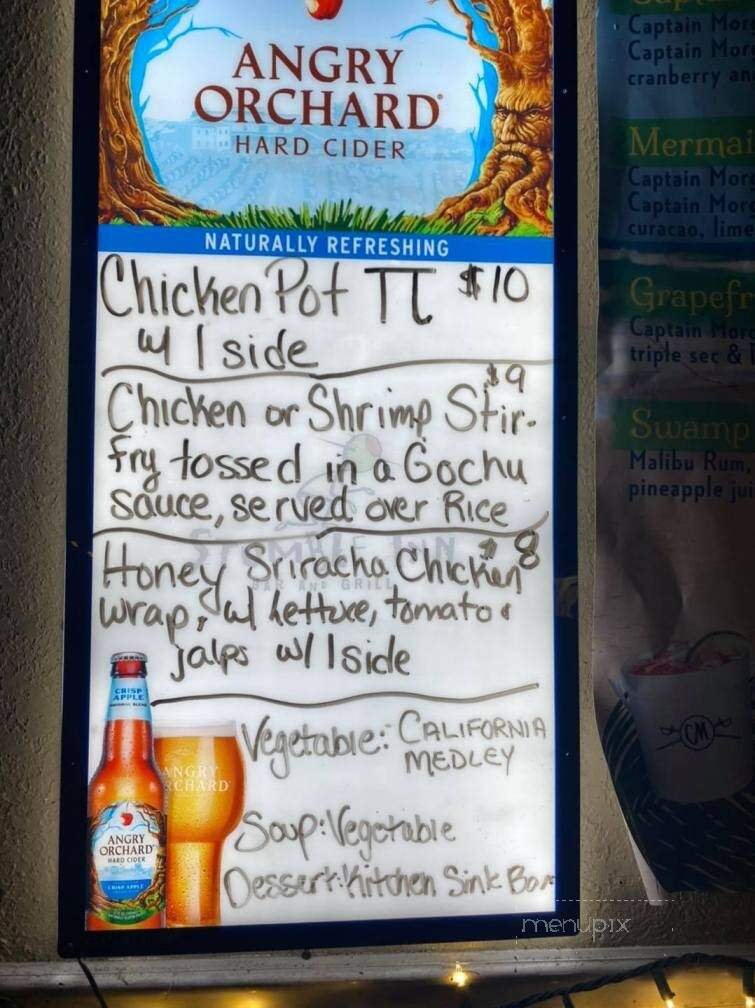 ANGRY
ORCHARD
HARD CIDER
NATURALLY REFRESHING
Chicken Pot π $10
w/ 1 side
$9
Chicken or Shrimp Stir-
fry tossed in a Gochu
Sauce, served over Rice
STUMBLE INN
BAR AND GRILL
Honey Sriracha Chicken $8
wrap, w/ lettuce, tomato &
jalps w/ 1 side
Vegetable: CALIFORNIA
MEDLEY
Soup: Vegetable
Dessert: Kitchen Sink Bar
CRISP
APPLE
ANGRY
ORCHARD
HARD CIDER
CRISP APPLE
ANGRY
ORCHARD
Captain Mor
Captain Mor
cranberry an
Mermai
Captain Mor
Captain Mor
curacao, lime
Grapefr
Captain Mor
triple sec &
Swamp
Malibu Rum,
pineapple jui
CM
menupix